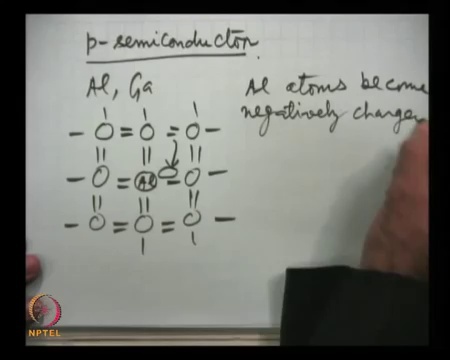 p-semiconductor
Al, Ga
Al atoms become
negatively charged
Al
NPTEL